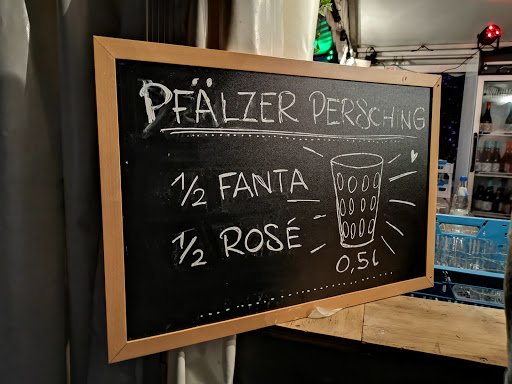 PFÄLZER PERSCHING
1/2 FANTA
1/2 ROSÉ
0,5l